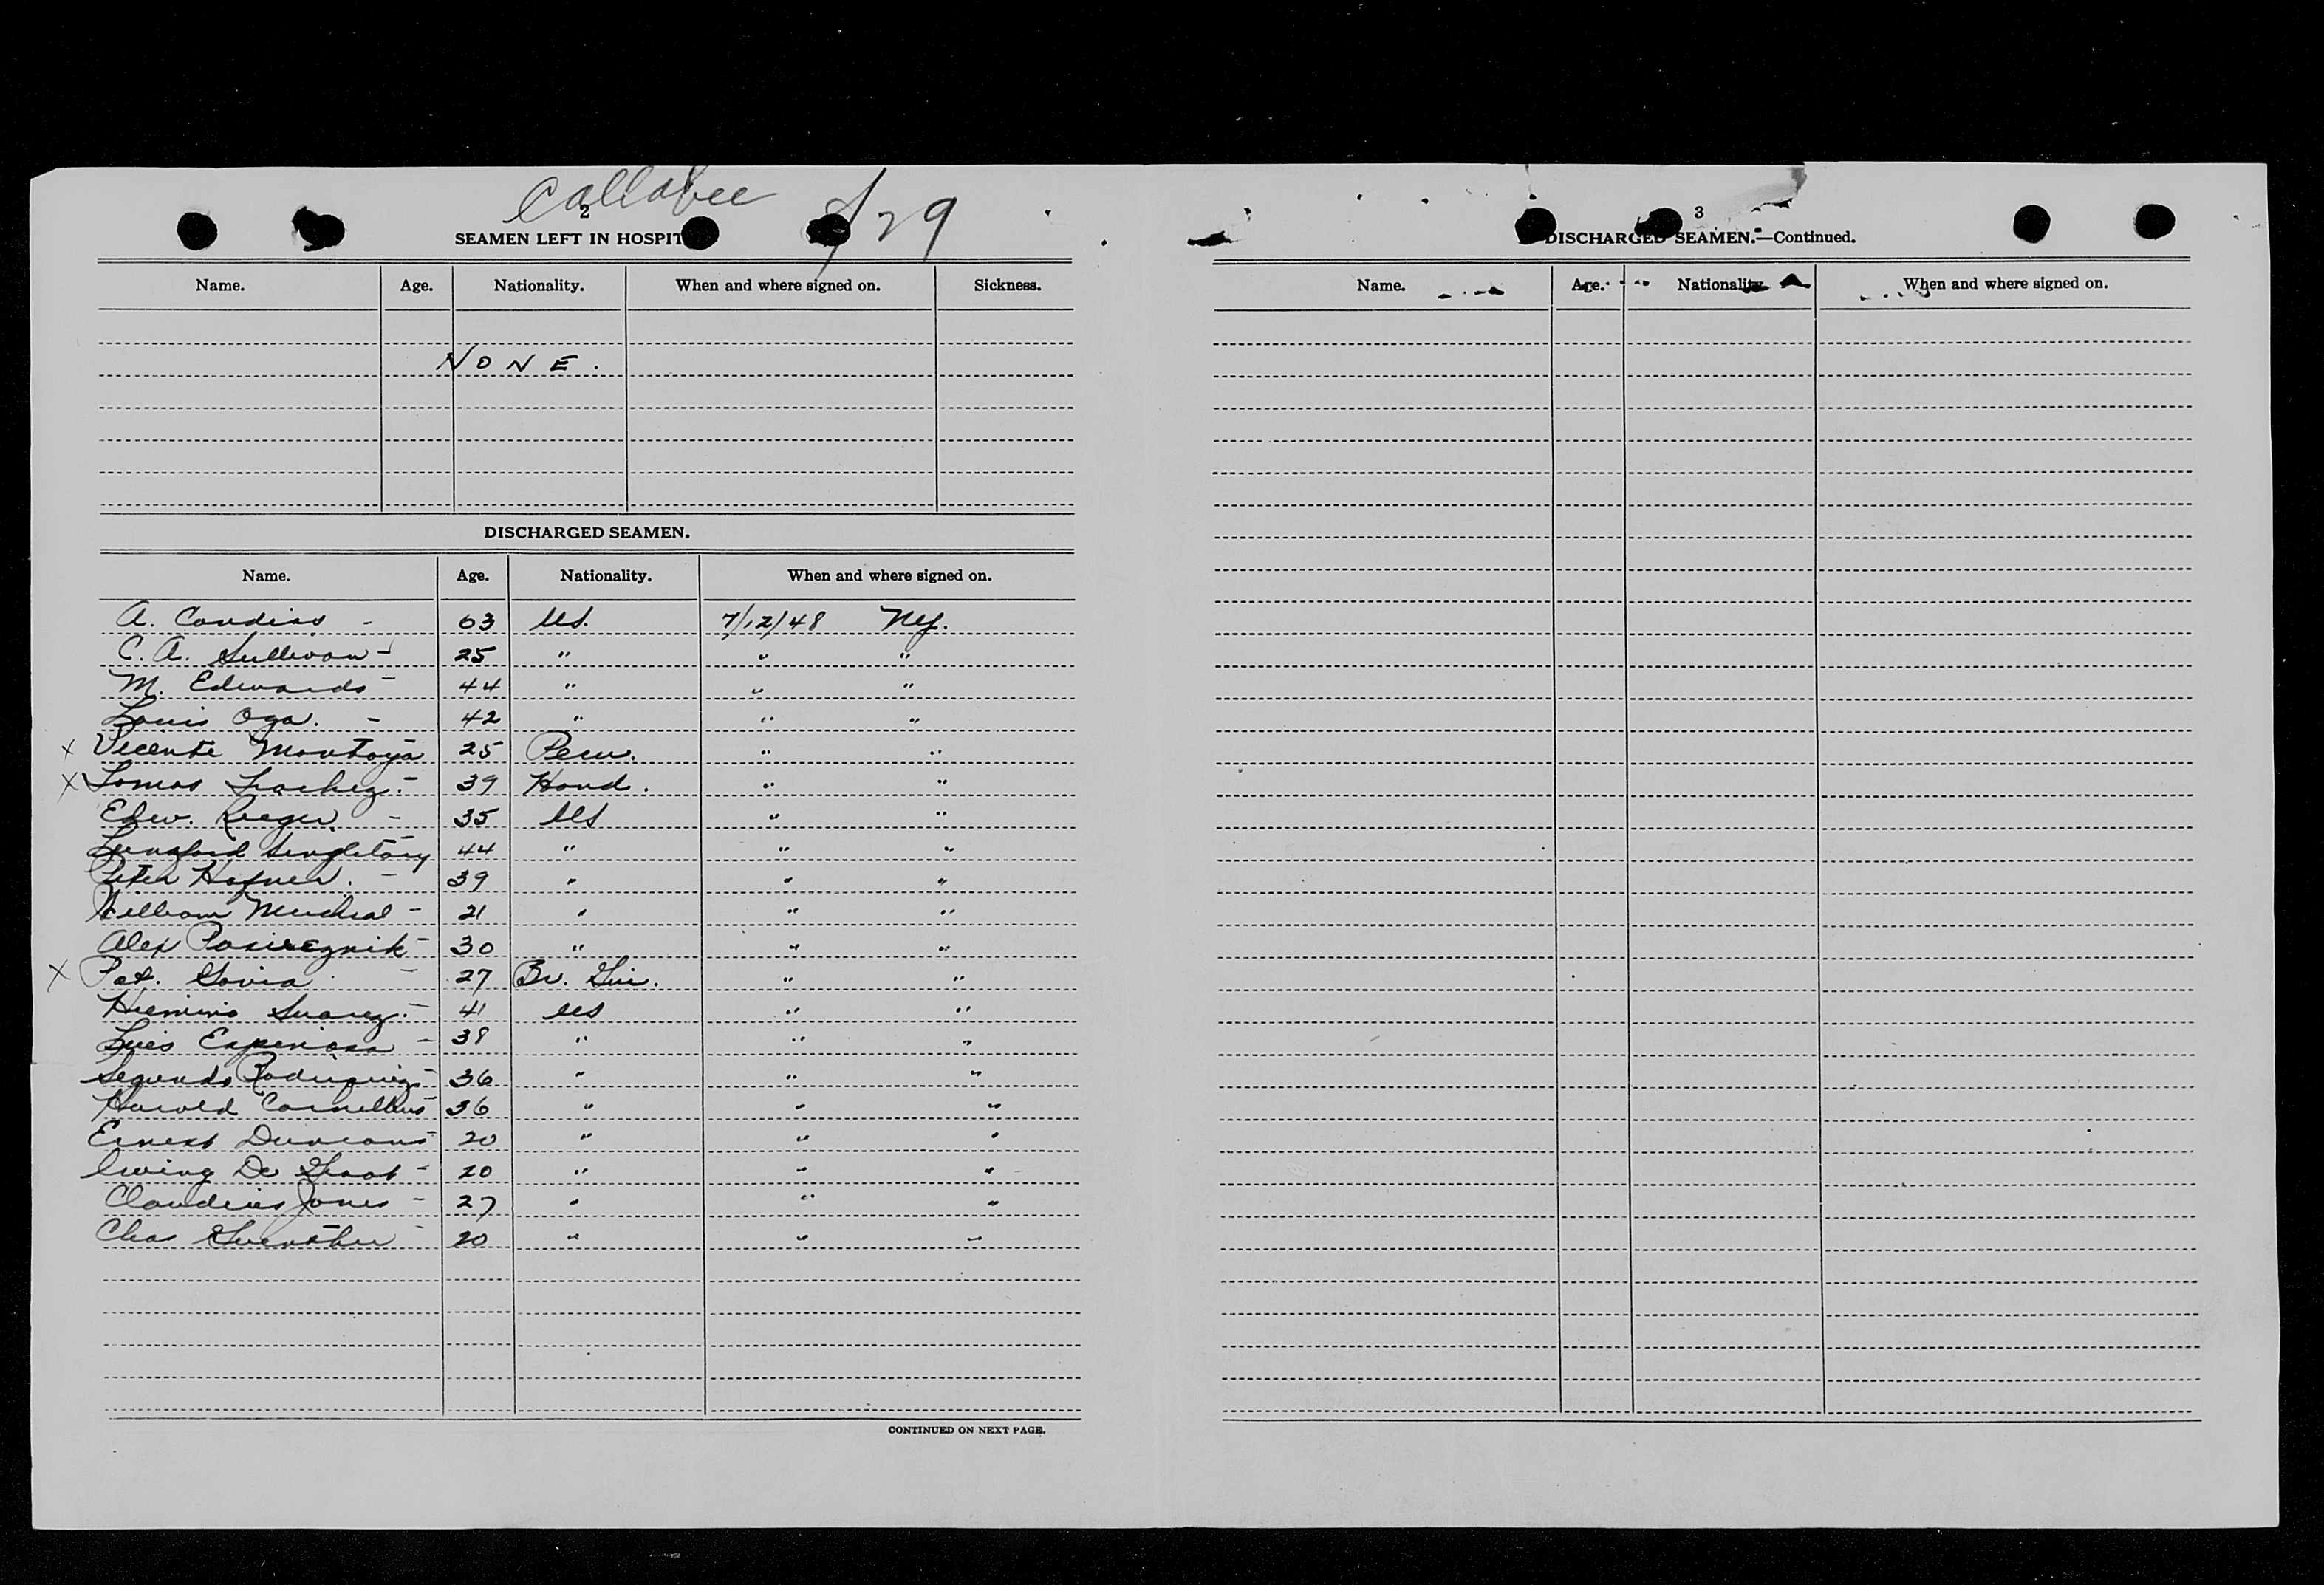 Callabee 7/29
2
SEAMEN LEFT IN HOSPIT
Name. Age. Nationality. When and where signed on. Sickness.
NONE.
DISCHARGED SEAMEN.
Name. Age. Nationality. When and where signed on.
A. Candias - 63 US. 7/12/48 NY.
C. A. Sullivan - 25 " " "
M. Edwards - 44 " " "
Louis Oga. - 42 " " "
x Vicente Montoya 25 Peru. " "
x Tomas - 39 Hond. " "
Edw. Reeger. - 35 US " "
Lunsford Singletary 44 " " "
Peter Hafner. - 39 " " "
William - 21 " " "
Alex - 30 " " "
x Pat. Govia - 27 Br. Gui. " "
Herminio Suarez. - 41 US " "
Luis Espinosa - 38 " " "
Segundo Rodriguez - 36 " " "
Harold Cornelius - 36 " " "
Ernest Duncan - 20 " " "
Irving De Groot - 20 " " "
Claudius Jones - 27 " " "
Chas Guenther - 20 " " "
CONTINUED ON NEXT PAGE.
3
DISCHARGED SEAMEN.—Continued.
Name. Age. Nationality. When and where signed on.